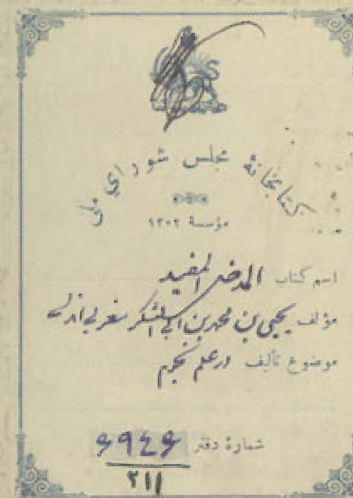 کتابخانهٔ مجلس شورای ملی
مؤسسهٔ ۱۳۰۲
اسم کتاب المدخل المفید
مؤلف یحیی بن محمد بن ابی الشکر مغربی اندلسی
موضوع تألیف در علم نجوم
شمارهٔ دفتر ۶۹۴۶
۲۱۱